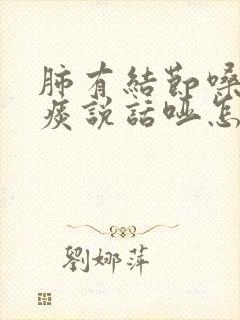 肺有結節嗓
痰說話啞怎
劉娜萍